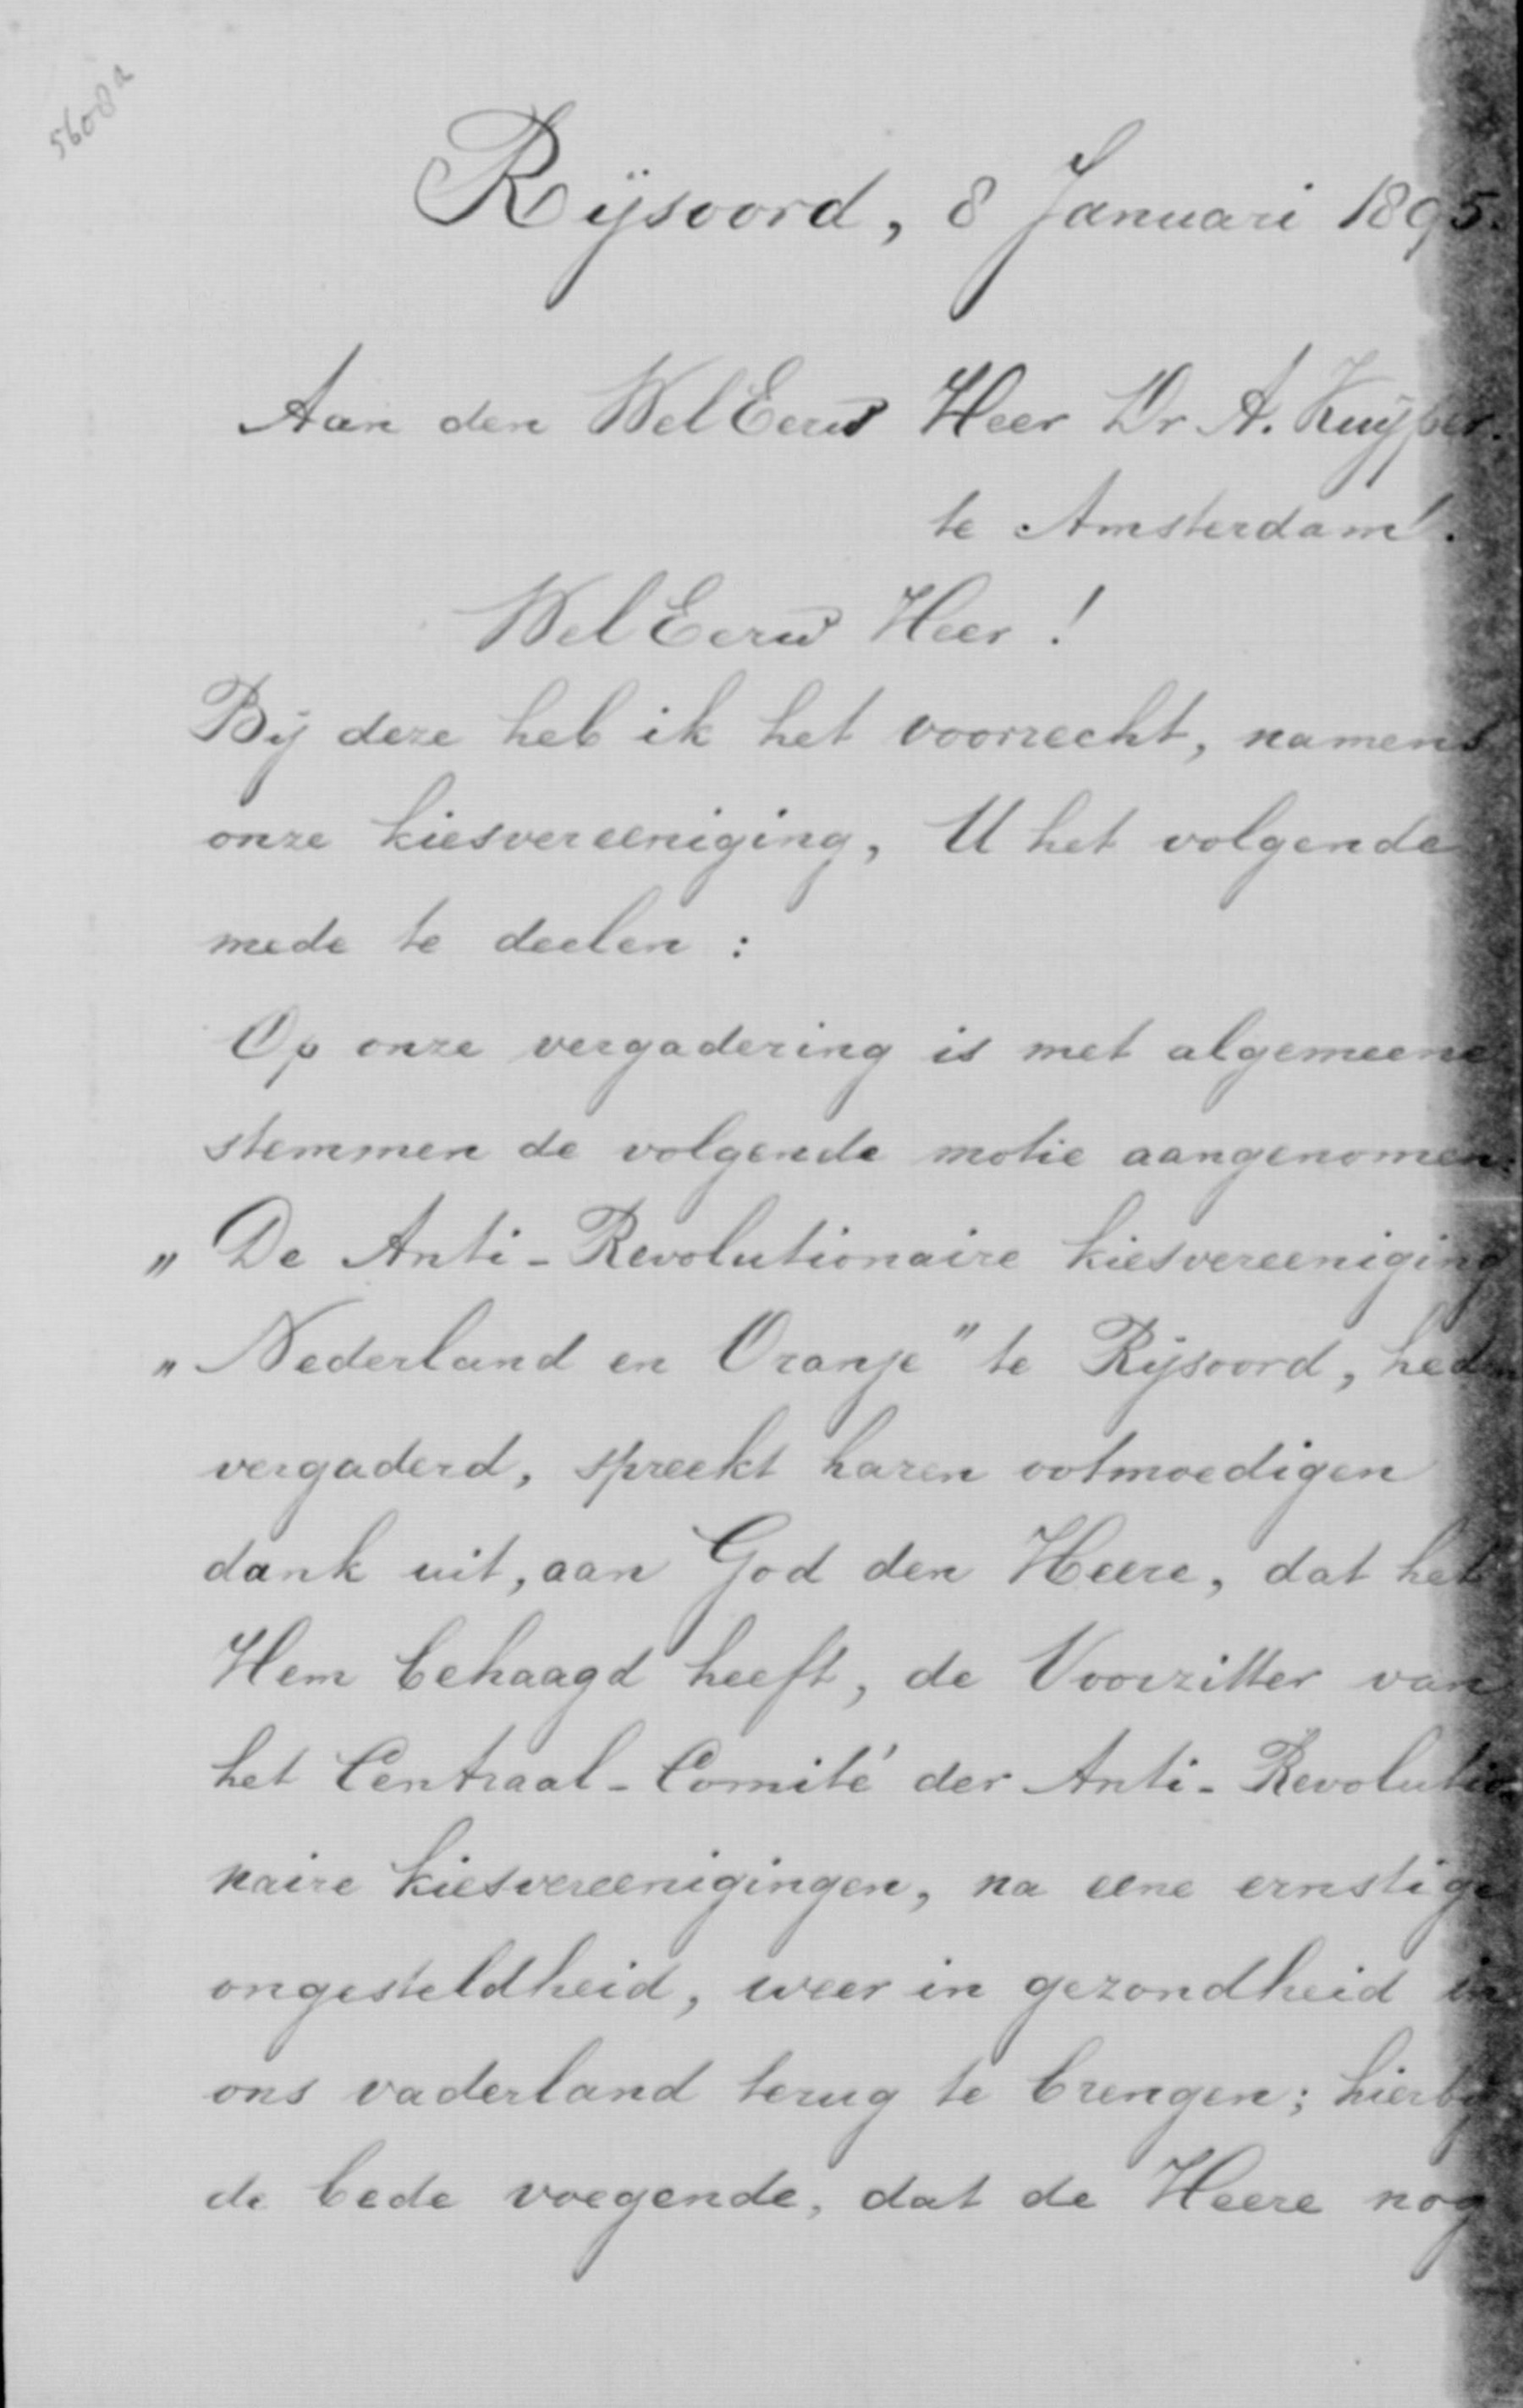 5608a
Rijsoord, 8 Januari 1895.
Aan den WelEerw Heer Dr A. Kuyper.
te Amsterdam.
WelEerw Heer!
Bij deze heb ik het voorrecht, namens
onze kiesvereeniging, U het volgende
mede te deelen:
Op onze vergadering is met algemeene
stemmen de volgende motie aangenomen:
„De Anti-Revolutionaire kiesvereeniging
„Nederland en Oranje" te Rijsoord, heden
vergaderd, spreekt haren ootmoedigen
dank uit, aan God den Heere, dat het
Hem behaagd heeft, de Voorzitter van
het Centraal-Comité der Anti-Revolutio-
naire kiesvereenigingen, na eene ernstige
ongesteldheid, weer in gezondheid in
ons vaderland terug te brengen; hierbij
de bede voegende, dat de Heere nog